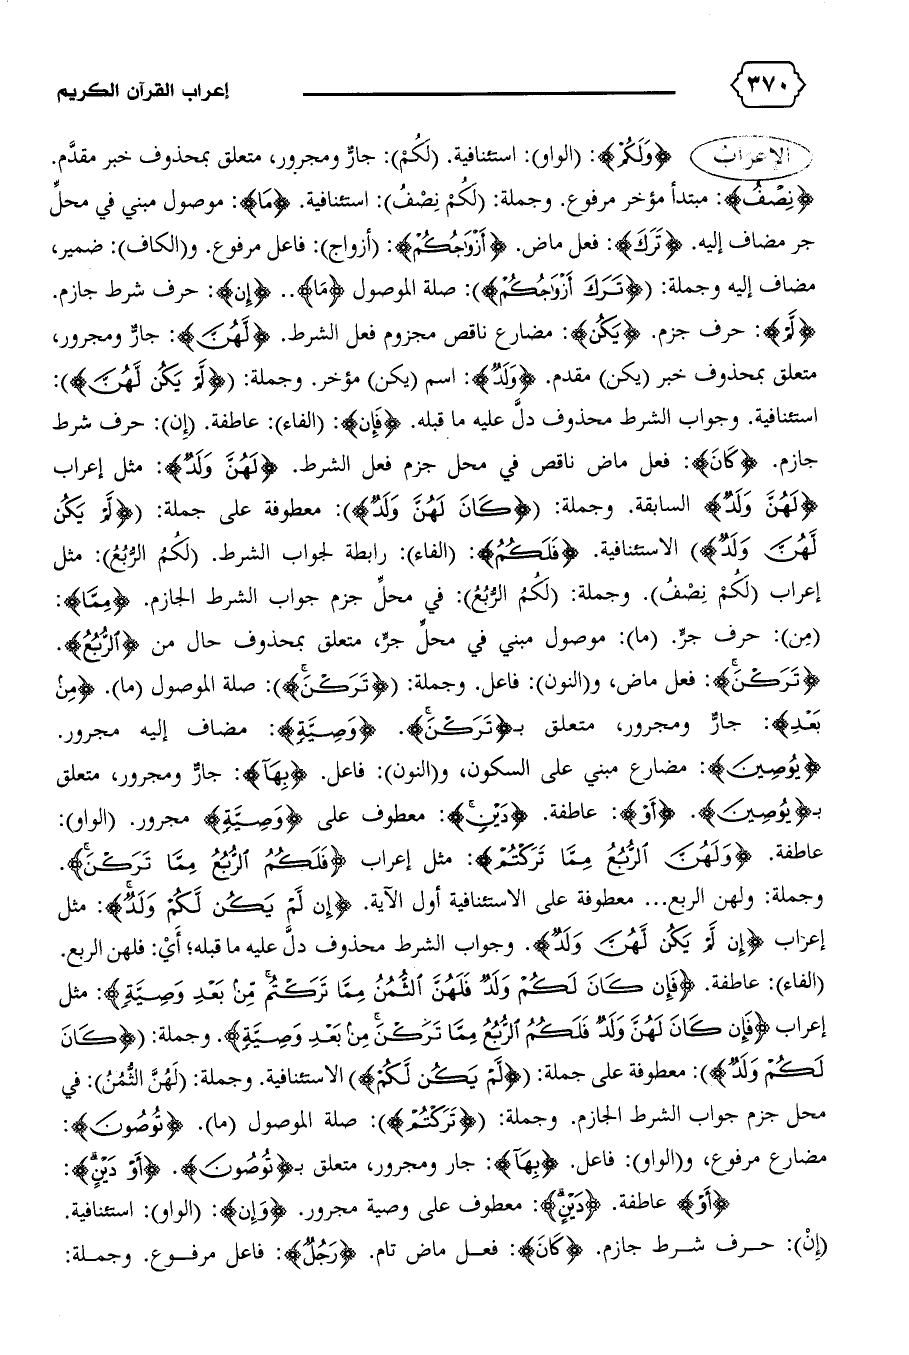 ٣٧٠ إعراب القرآن الكريم
الإعراب ﴿وَلَكُمْ﴾: (الواو): استئنافية. (لَكُمْ): جارٌّ ومجرور، متعلق بمحذوف خبر مقدَّم.
﴿نِصْفُ﴾: مبتدأ مؤخر مرفوع. وجملة: (لَكُمْ نِصْفُ): استئنافية. ﴿مَا﴾: موصول مبني في محلِّ
جر مضاف إليه. ﴿تَرَكَ﴾: فعل ماض. ﴿أَزْوَٰجُكُمْ﴾: (أزواج): فاعل مرفوع. و(الكاف): ضمير،
مضاف إليه وجملة: (﴿تَرَكَ أَزْوَٰجُكُمْ﴾): صلة الموصول ﴿مَا﴾.. ﴿إِن﴾: حرف شرط جازم.
﴿لَّمْ﴾: حرف جزم. ﴿يَكُن﴾: مضارع ناقص مجزوم فعل الشرط. ﴿لَّهُنَّ﴾: جارٌّ ومجرور،
متعلق بمحذوف خبر (يكن) مقدم. ﴿وَلَدٌ﴾: اسم (يكن) مؤخر. وجملة: (﴿لَّمْ يَكُن لَّهُنَّ﴾):
استئنافية. وجواب الشرط محذوف دلَّ عليه ما قبله. ﴿فَإِن﴾: (الفاء): عاطفة. (إِن): حرف شرط
جازم. ﴿كَانَ﴾: فعل ماض ناقص في محل جزم فعل الشرط. ﴿لَهُنَّ وَلَدٌ﴾: مثل إعراب
﴿لَهُنَّ وَلَدٌ﴾ السابقة. وجملة: (﴿كَانَ لَهُنَّ وَلَدٌ﴾): معطوفة على جملة: (﴿لَّمْ يَكُن
لَّهُنَّ وَلَدٌ﴾) الاستئنافية. ﴿فَلَكُمُ﴾: (الفاء): رابطة لجواب الشرط. (لَكُمُ الرُّبُعُ): مثل
إعراب (لَكُمْ نِصْفُ). وجملة: (لَكُمُ الرُّبُعُ): في محلِّ جزم جواب الشرط الجازم. ﴿مِمَّا﴾:
(مِن): حرف جرٍّ. (ما): موصول مبني في محلِّ جرٍّ، متعلق بمحذوف حال من ﴿ٱلرُّبُعُ﴾.
﴿تَرَكْنَ﴾: فعل ماض، و(النون): فاعل. وجملة: (﴿تَرَكْنَ﴾): صلة الموصول (ما). ﴿مِنۢ
بَعْدِ﴾: جارٌّ ومجرور، متعلق بـ﴿تَرَكْنَ﴾. ﴿وَصِيَّةٍ﴾: مضاف إليه مجرور.
﴿يُوصِينَ﴾: مضارع مبني على السكون، و(النون): فاعل. ﴿بِهَآ﴾: جارٌّ ومجرور، متعلق
بـ﴿يُوصِينَ﴾. ﴿أَوْ﴾: عاطفة. ﴿دَيْنٍ﴾: معطوف على ﴿وَصِيَّةٍ﴾ مجرور. (الواو):
عاطفة. ﴿وَلَهُنَّ ٱلرُّبُعُ مِمَّا تَرَكْتُمْ﴾: مثل إعراب ﴿فَلَكُمُ ٱلرُّبُعُ مِمَّا تَرَكْنَ﴾.
وجملة: ولهن الربع... معطوفة على الاستئنافية أول الآية. ﴿إِن لَّمْ يَكُن لَّكُمْ وَلَدٌ﴾: مثل
إعراب ﴿إِن لَّمْ يَكُن لَّهُنَّ وَلَدٌ﴾. وجواب الشرط محذوف دلَّ عليه ما قبله؛ أَيْ: فلهن الربع.
(الفاء): عاطفة. ﴿فَإِن كَانَ لَكُمْ وَلَدٌ فَلَهُنَّ ٱلثُّمُنُ مِمَّا تَرَكْتُم مِّنۢ بَعْدِ وَصِيَّةٍ﴾: مثل
إعراب ﴿فَإِن كَانَ لَهُنَّ وَلَدٌ فَلَكُمُ ٱلرُّبُعُ مِمَّا تَرَكْنَ مِنۢ بَعْدِ وَصِيَّةٍ﴾. وجملة: (﴿كَانَ
لَكُمْ وَلَدٌ﴾): معطوفة على جملة: (﴿لَّمْ يَكُن لَّكُمْ﴾) الاستئنافية. وجملة: (لَهُنَّ الثُّمُنُ): في
محل جزم جواب الشرط الجازم. وجملة: (﴿تَرَكْتُم﴾): صلة الموصول (ما). ﴿تُوصُونَ﴾:
مضارع مرفوع، و(الواو): فاعل. ﴿بِهَآ﴾: جار ومجرور، متعلق بـ﴿تُوصُونَ﴾. ﴿أَوْ دَيْنٍ﴾:
﴿أَوْ﴾ عاطفة. ﴿دَيْنٍ﴾: معطوف على وصية مجرور. ﴿وَإِن﴾: (الواو): استئنافية.
(إِنْ): حرف شرط جازم. ﴿كَانَ﴾: فعل ماض تام. ﴿رَجُلٌ﴾: فاعل مرفوع. وجملة: